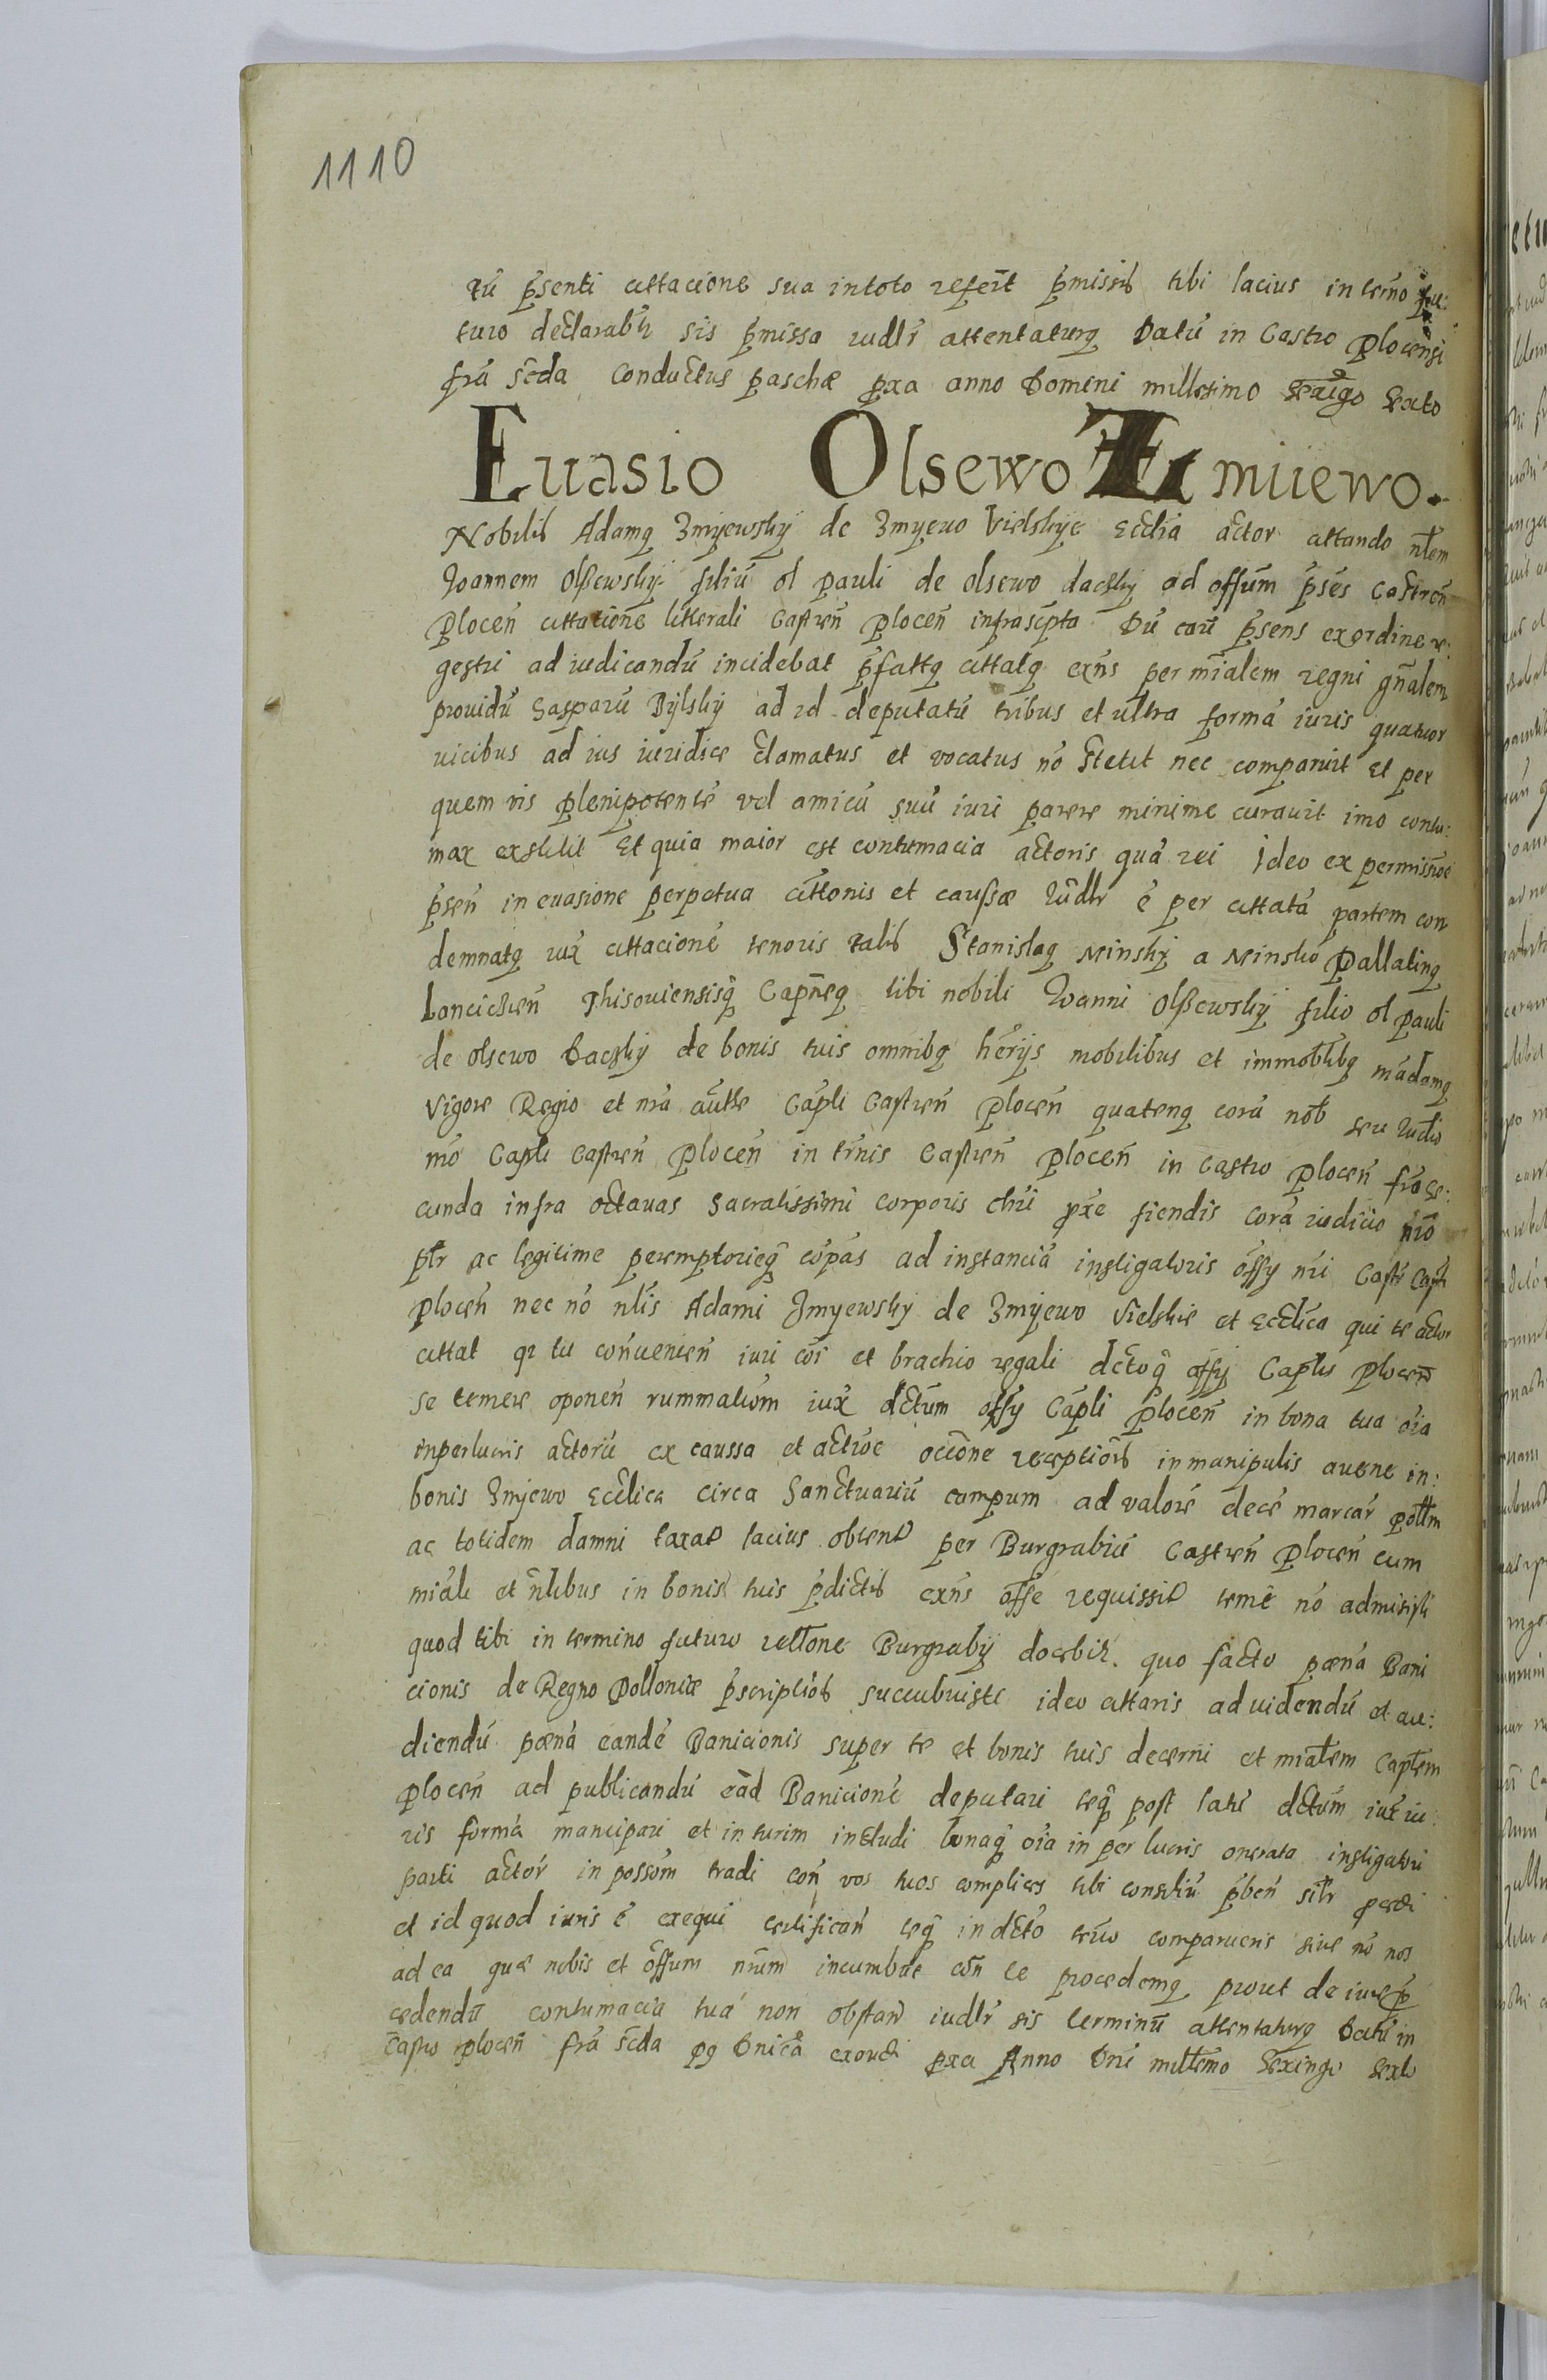 1110
tũ p̃senti cittacione sua in toto referĩt p̃missis tibi lacius in termĩo fu:
turo declarabĩt sis p̃missa iudlr̃ attentaturq Datũ in Castro plocensi
frã scda conductus paschæ pxa anno Domini millesimo sexigo sexto
Euasio Olsewo Zmiiewo.
Nobilis Adamq Zmijewskij de Zmyewo Vielskye Ecclia actor cittando nlem
Joannem Olßewskij filiũ ol pauli de olsewo daczky ad offum p̃sẽs Castreñ
Ploceñ cittacioñe litterali Castreñ Ploceñ infrascripta Dũ caũ p̃sens ex ordine re:
gestri ad iudicandũ incidebat p̃fattq cittatq exñs per mĩalem regni gñalem
prouidũ Gasparũ Bijlskij ad id deputatũ tribus et ultra formã iuris quatuor
uicibus ad ius iuridice clamatus et vocatus nõ stetit nec comparuit Et per
quem uis plenipotentẽ vel amicũ suũ iuri parere minime curauit imo contu:
max exstitit Et quia maior est contumacia actoris quã rei Ideo ex permissioẽ
p̃señ in euasione perpetua cittonis et caussæ Iudlr ẽ per cittatã partem con
demnatq iux cittacionẽ tenoris talis Stanislaq Minskij a Minsko Pallatinq
Lanciczieñ Thisouiensisq Capñeq tibi nobili Joanni Olßewskij filio ol pauli
de olsewo Daczkij de bonis tuis omnibq herijs mobilibus et immobĩlibq mãdamq
Vigore Regio et nrã aũtte Cãpli Castreñ Ploceñ quatenq corã nob seu Iudio
nrõ Capli Castreñ Ploceñ in trñis Castreñ Ploceñ in Castro Ploceñ frã se:
cunda infra octauas Sacratissimi corporis chrĩ pxe fiendis corã iudicio nrõ
plr ac legitime peremptorieq cõpãs ad instanciã instigatoris offy nri Castr Cast
Ploceñ nec nõ nlis Adami Zmyewskij de Zmyewo Vielskie et Ecclica qui te actor
cittat qz tu conuenieñ iuri coi et brachio regali dctoq offij Caplis Ploceñ
se temere oponeñ rummatiõm iux dctum offy Cãpli Ploceñ in bona tua oĩa
in per lucris actoriũ ex caussa et actioe occõne receptiõis in manipulis auene in:
bonis Zmyewo Ecclica circa Sanctuariũ campum ad valorẽ decẽ marcar pollm
ac totidem damni taxat lacius obtent per Burgrabiũ Castreñ Ploceñ cum
miãli et ñlibus in bonis tuis p̃dictis exñs offe requissit temẽ nõ admisisti
quod tibi in termino futuro rellone Burgrabij docebit. quo facto pænã Bani
cionis de Regno Polloniæ p̃scriptiõis succubuiste ideo cittaris ad uidendũ et au:
diendũ pænã eandẽ Banicionis super te et bonis tuis decerni et miãlem Captem
ploceñ ad publicandũ eãd Banicionẽ deputari teq post latũ dctum iux iu:
ris formã mancipari et in turim includi bonaq oĩa in per lucris onerata instigatori
parti actor in possom tradi coñ vos tuos complices tibi consiliũ p̃beñ silr pcedi
et id quod iuris ẽ exequi certificañ teq in dcto trĩo comparueris siue nõ nos
ad ea quæ nobis et offum nrũm incumbũt coñ te procedemq prout de iure p
cedendũ contumacia tuã non obstañ iudlr sis terminũ attentaturq Datũ in
Castro ploceñ frã scda pq Dnicã exoudi pxa Anno Dni millemo sexingo sexto